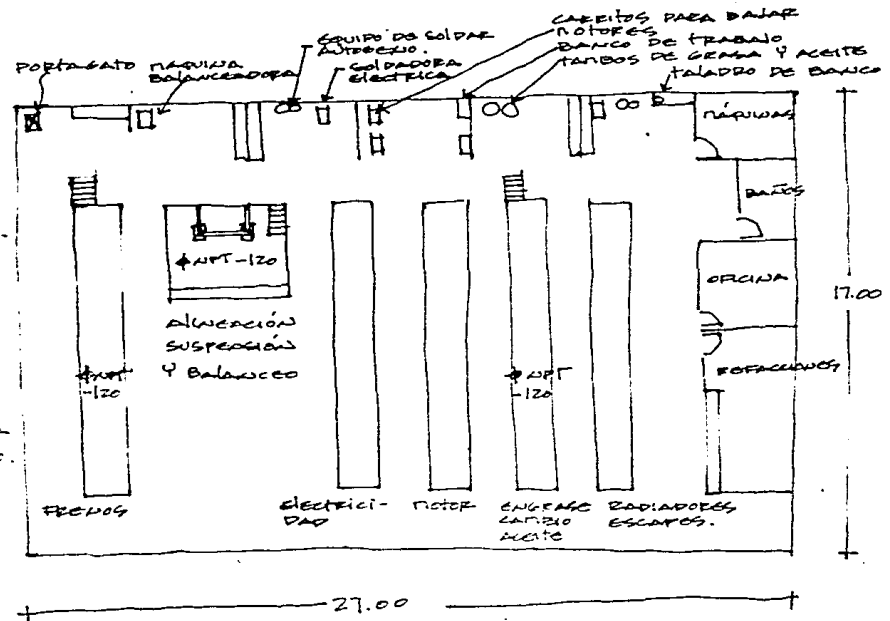 PORTAGATO
MAQUINA
BALANCEADORA
EQUIPO DE SOLDAR
AUTOGENO.
SOLDADORA
ELECTRICA
CARRITOS PARA BAJAR
MOTORES
BANCO DE TRABAJO
TAMBOS DE GRASA Y ACEITE
TALADRO DE BANCO
MÁQUINAS
BAÑOS
OFICINA
REFACCIONES
NPT -120
ALINEACIÓN
SUSPENSIÓN
Y BALANCEO
NPT
-120
NPT
-120
FRENOS
ELECTRICI-
DAD
MOTOR
ENGRASE
CAMBIO
ACEITE
RADIADORES
ESCAPES.
17.00
27.00